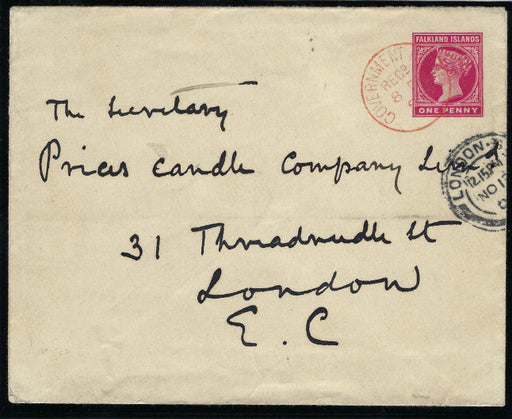 FALKLAND ISLANDS
ONE PENNY
GOVERNMENT
RECD
8
LONDON
12.15PM
NO 1
The Secretary
Prices Candle Company Lim
31 Threadneedle St
London
E. C